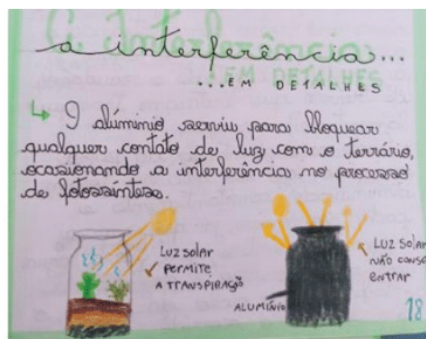 a interferência...
...EM DETALHES
↳ O alúminio serviu para bloquear
qualquer contato de luz com o terrário,
ocasionando a interferência no processo
de fotossíntese.
LUZ SOLAR
PERMITE
A TRANSPIRAÇÃO
LUZ SOLAR
NÃO CONSE
ENTRAR
ALUMÍNIO
18